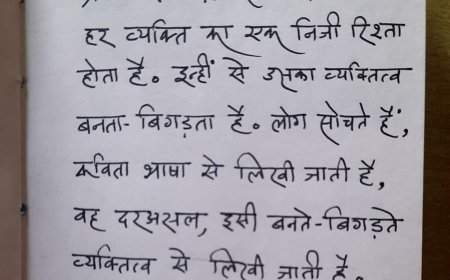 हर व्यक्ति का एक निजी रिश्ता
होता है। इन्हीं से उसका व्यक्तित्व
बनता-बिगड़ता है। लोग सोचते हैं,
कविता भाषा से लिखी जाती है,
वह दरअसल, इसी बनते-बिगड़ते
व्यक्तित्व से लिखी जाती है।